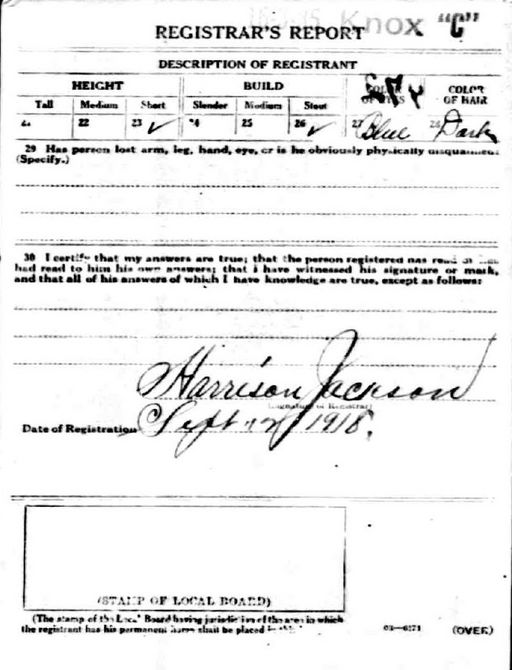 Knox "C"
REGISTRAR'S REPORT
DESCRIPTION OF REGISTRANT
HEIGHT BUILD COLOR OF EYES COLOR OF HAIR
Tall Medium Short Slender Medium Stout
21 22 23 ✓ 24 25 26 ✓ 27 Blue 28 Dark
29 Has person lost arm, leg, hand, eye, or is he obviously physically disqualified?
(Specify.)
30 I certify that my answers are true; that the person registered has read or has
had read to him his own answers; that I have witnessed his signature or mark,
and that all of his answers of which I have knowledge are true, except as follows:
Harrison Jackson
(Signature of Registrar)
Date of Registration Sept 12 1918.
(STAMP OF LOCAL BOARD)
(The stamp of the Local Board having jurisdiction of the area in which
the registrant has his permanent home shall be placed in this
03—6171 (OVER)